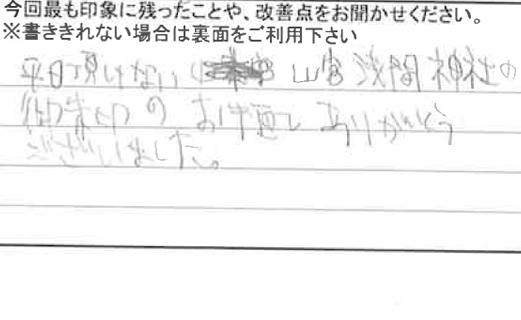 今回最も印象に残ったことや、改善点をお聞かせください。
※書ききれない場合は裏面をご利用下さい
平日頂けない 山宮浅間神社の
御朱印の お件 ありがとう
ございました。